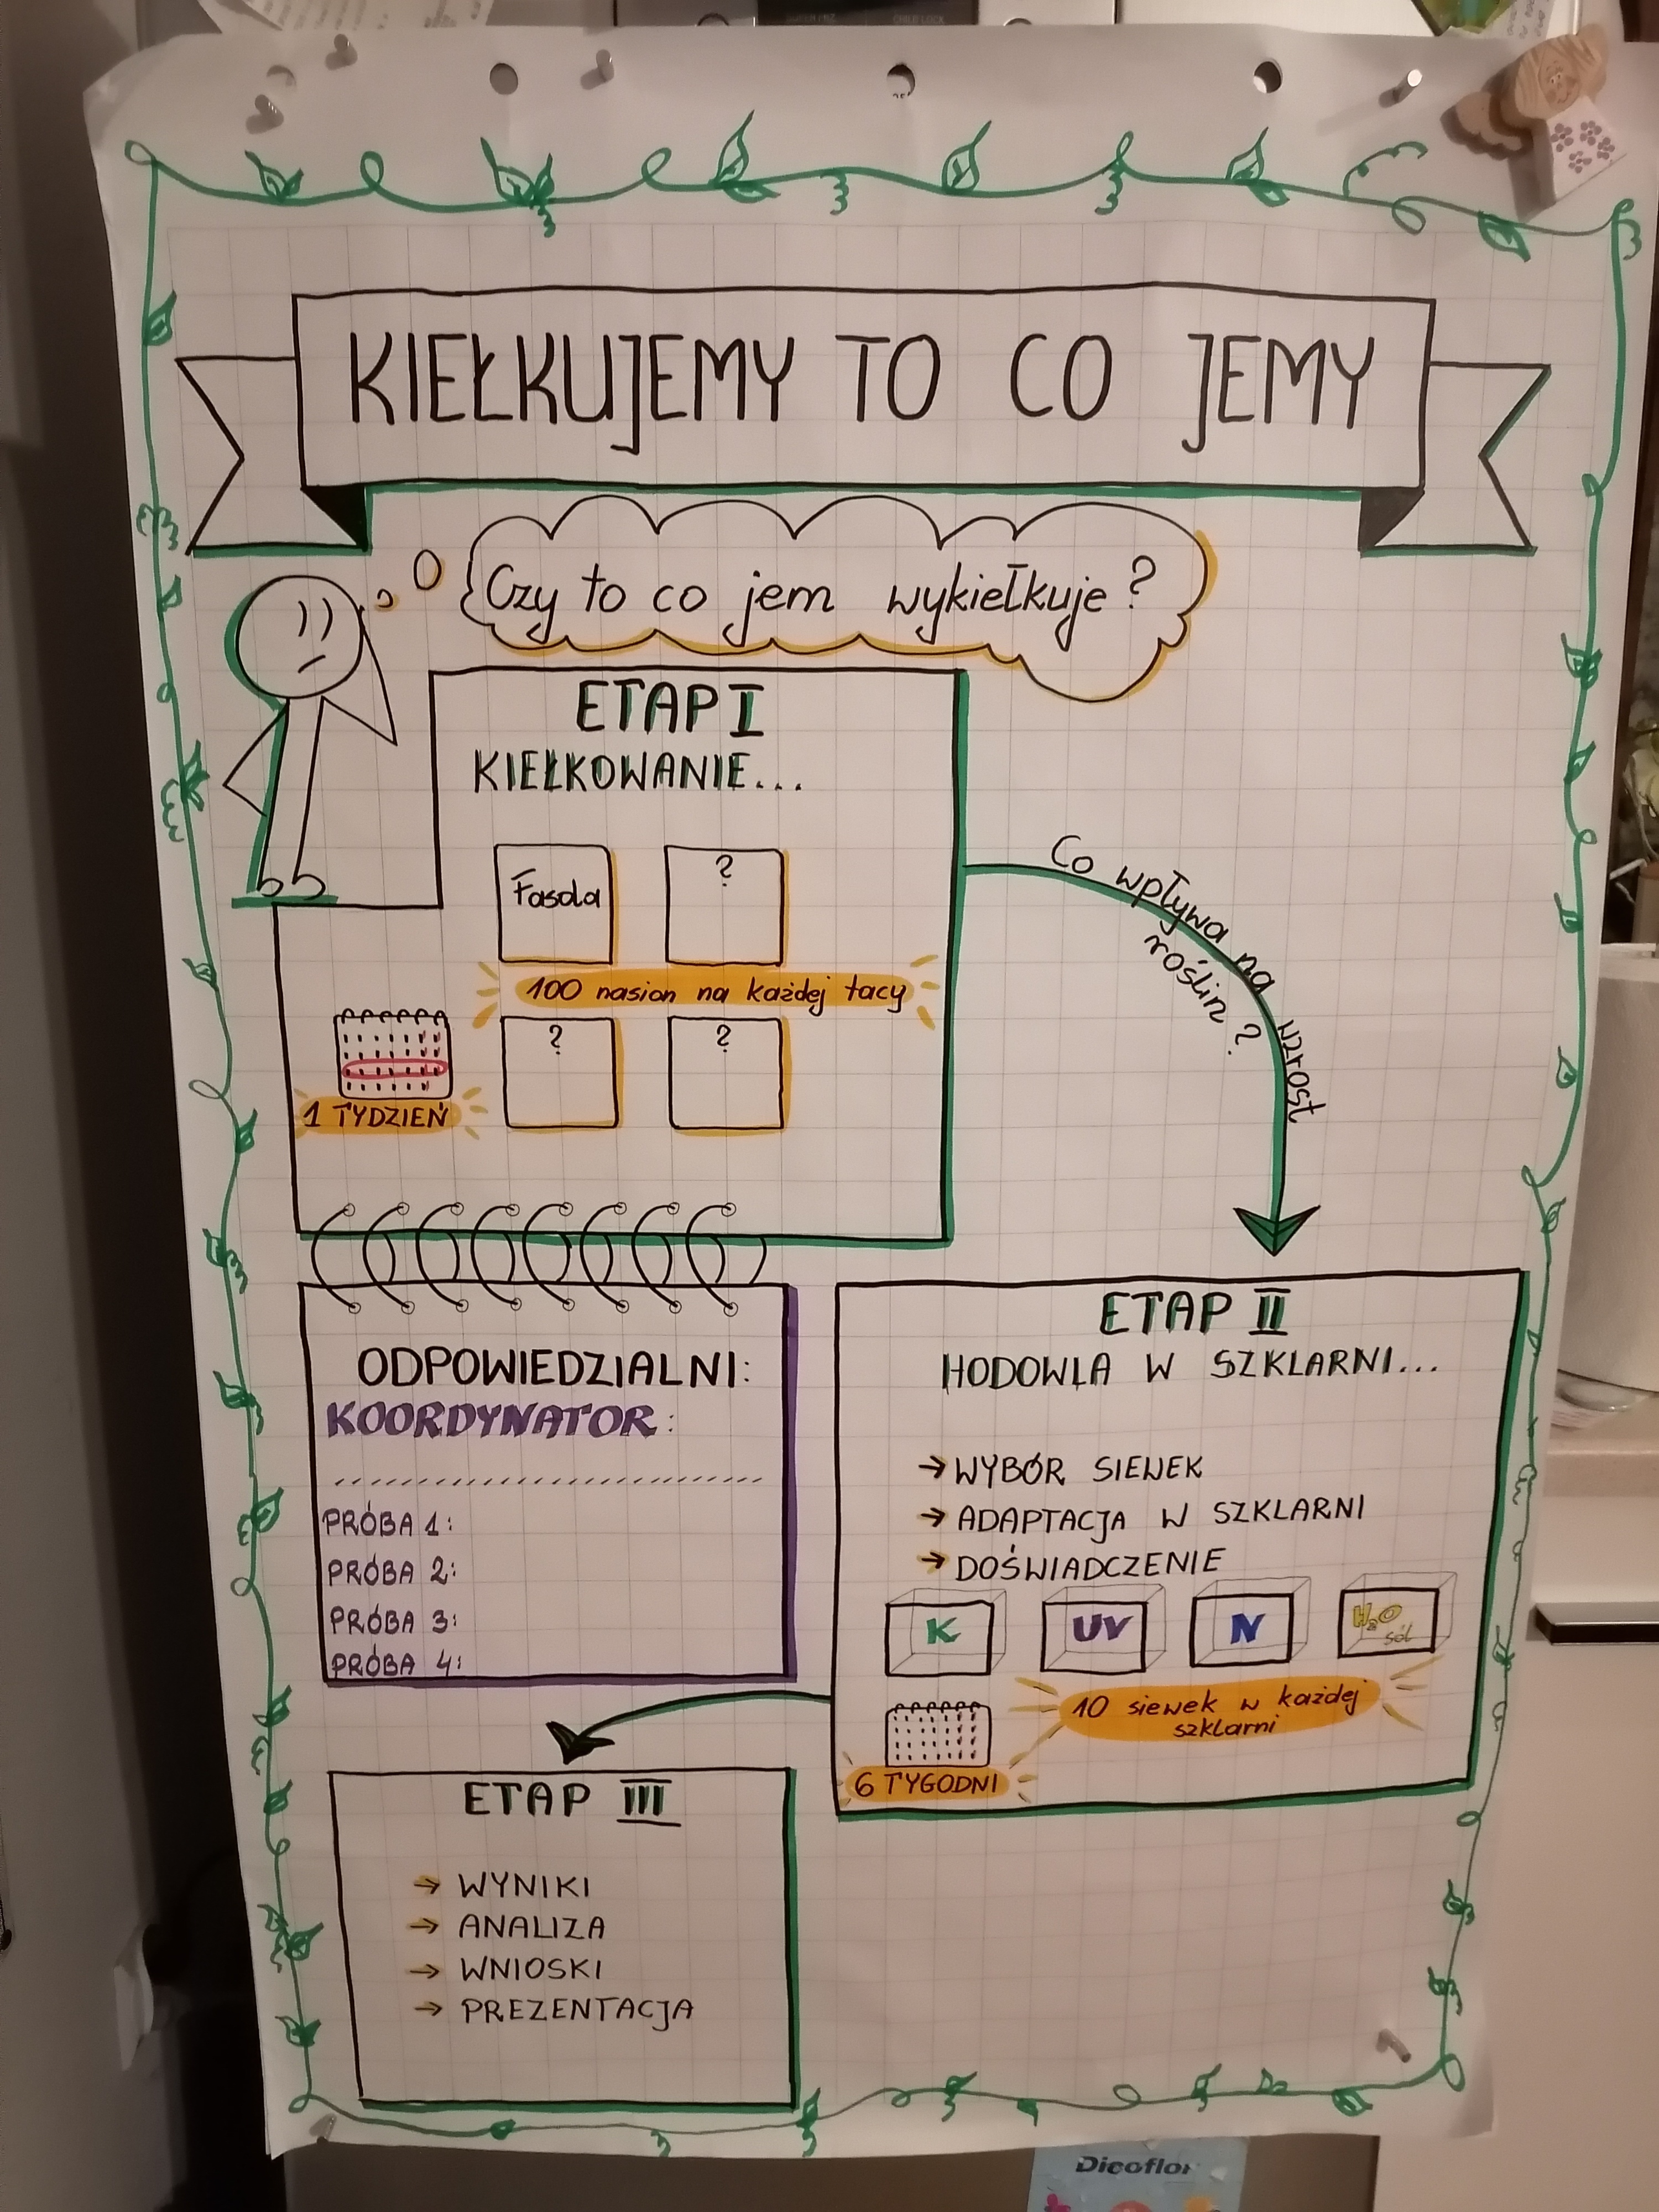 KIEŁKUJEMY TO CO JEMY
Czy to co jem wykiełkuje?
ETAP I
KIEŁKOWANIE...
Fasola
?
100 nasion na każdej tacy
?
?
1 TYDZIEŃ
Co wpływa na wzrost
roślin?
ODPOWIEDZIALNI:
KOORDYNATOR:
PRÓBA 1:
PRÓBA 2:
PRÓBA 3:
PRÓBA 4:
ETAP II
HODOWLA W SZKLARNI...
→ WYBÓR SIEWEK
→ ADAPTACJA W SZKLARNI
→ DOŚWIADCZENIE
K
UV
N
H₂O
sól
10 siewek w każdej
szklarni
6 TYGODNI
ETAP III
→ WYNIKI
→ ANALIZA
→ WNIOSKI
→ PREZENTACJA
Dicoflor